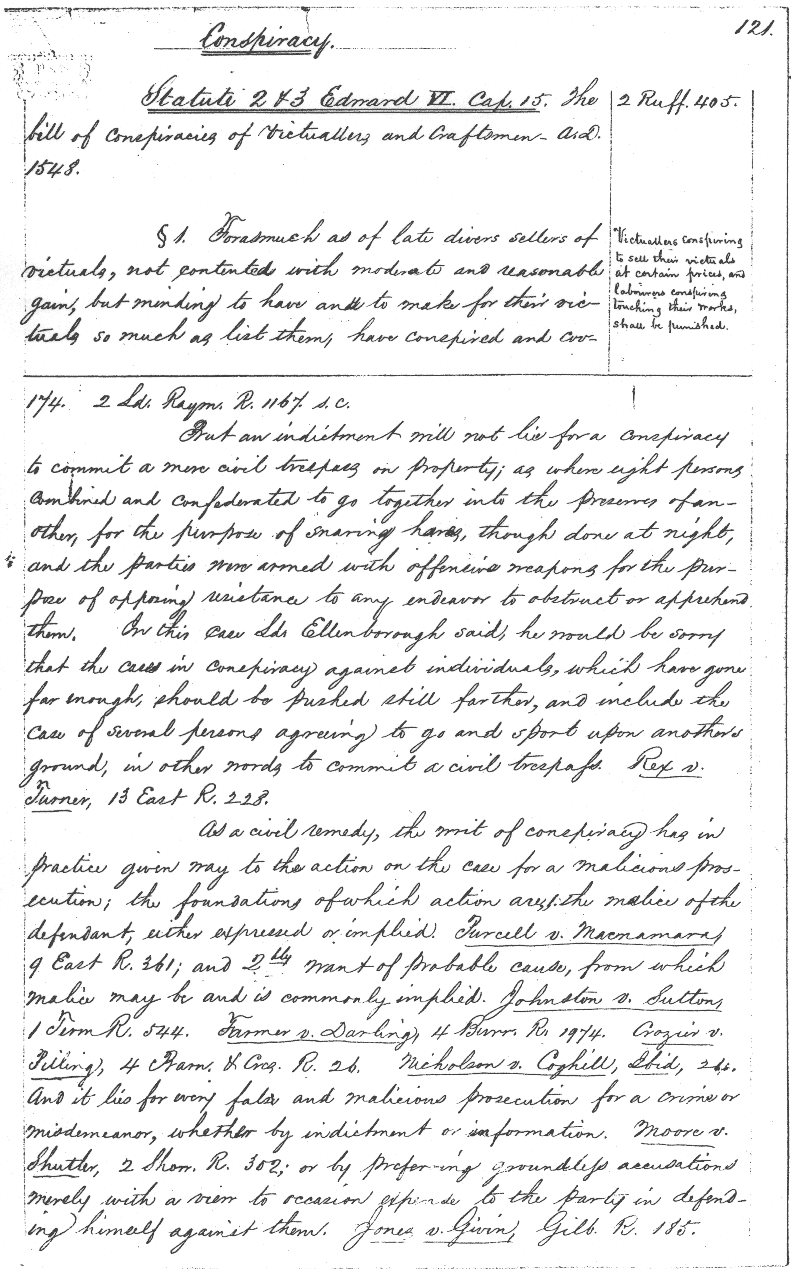 121.
Conspiracy.
Statute 2 & 3 Edward VI. Cap. 15. The
bill of conspiracies of Victuallers and Craftsmen - A.D.
1548.
2 Ruff. 405.
§ 1. Forasmuch as of late divers sellers of
victuals, not contented with moderate and reasonable
gain, but minding to have and to make for their vic-
tuals so much as list them, have conspired and cov-
Victuallers conspiring
to sell their victuals
at certain prices, and
labourers conspiring
touching their works,
shall be punished.
174. 2 Ld. Raym. R. 1167. s.c.
But an indictment will not lie for a conspiracy
to commit a mere civil trespass on property; as where eight persons
combined and confederated to go together into the preserves of an-
other, for the purpose of snaring hares, though done at night,
and the parties were armed with offensive weapons for the pur-
pose of opposing resistance to any endeavor to obstruct or apprehend
them. In this case Ld. Ellenborough said, he would be sorry
that the cases in conspiracy against individuals, which have gone
far enough, should be pushed still farther, and include the
case of several persons agreeing to go and sport upon another's
ground, in other words to commit a civil trespass. Rex v.
Turner, 13 East R. 228.
As a civil remedy, the writ of conspiracy has in
practice given way to the action on the case for a malicious pros-
ecution; the foundations of which action are, 1. the malice of the
defendant, either expressed or implied. Purcell v. Macnamara,
9 East R. 361; and 2ly want of probable cause, from which
malice may be and is commonly implied. Johnston v. Sutton,
1 Term R. 544. Farmer v. Darling, 4 Burr. R. 1974. Crozier v.
Pilling, 4 Barn. & Cres. R. 26. Nicholson v. Coghill, Ibid, 26.
And it lies for every false and malicious prosecution for a crime or
misdemeanor, whether by indictment or information. Moore v.
Shutler, 2 Show. R. 302; or by preferring groundless accusations
merely with a view to occasion expense to the party in defend-
ing himself against them. Jones v. Givin, Gilb. R. 185.